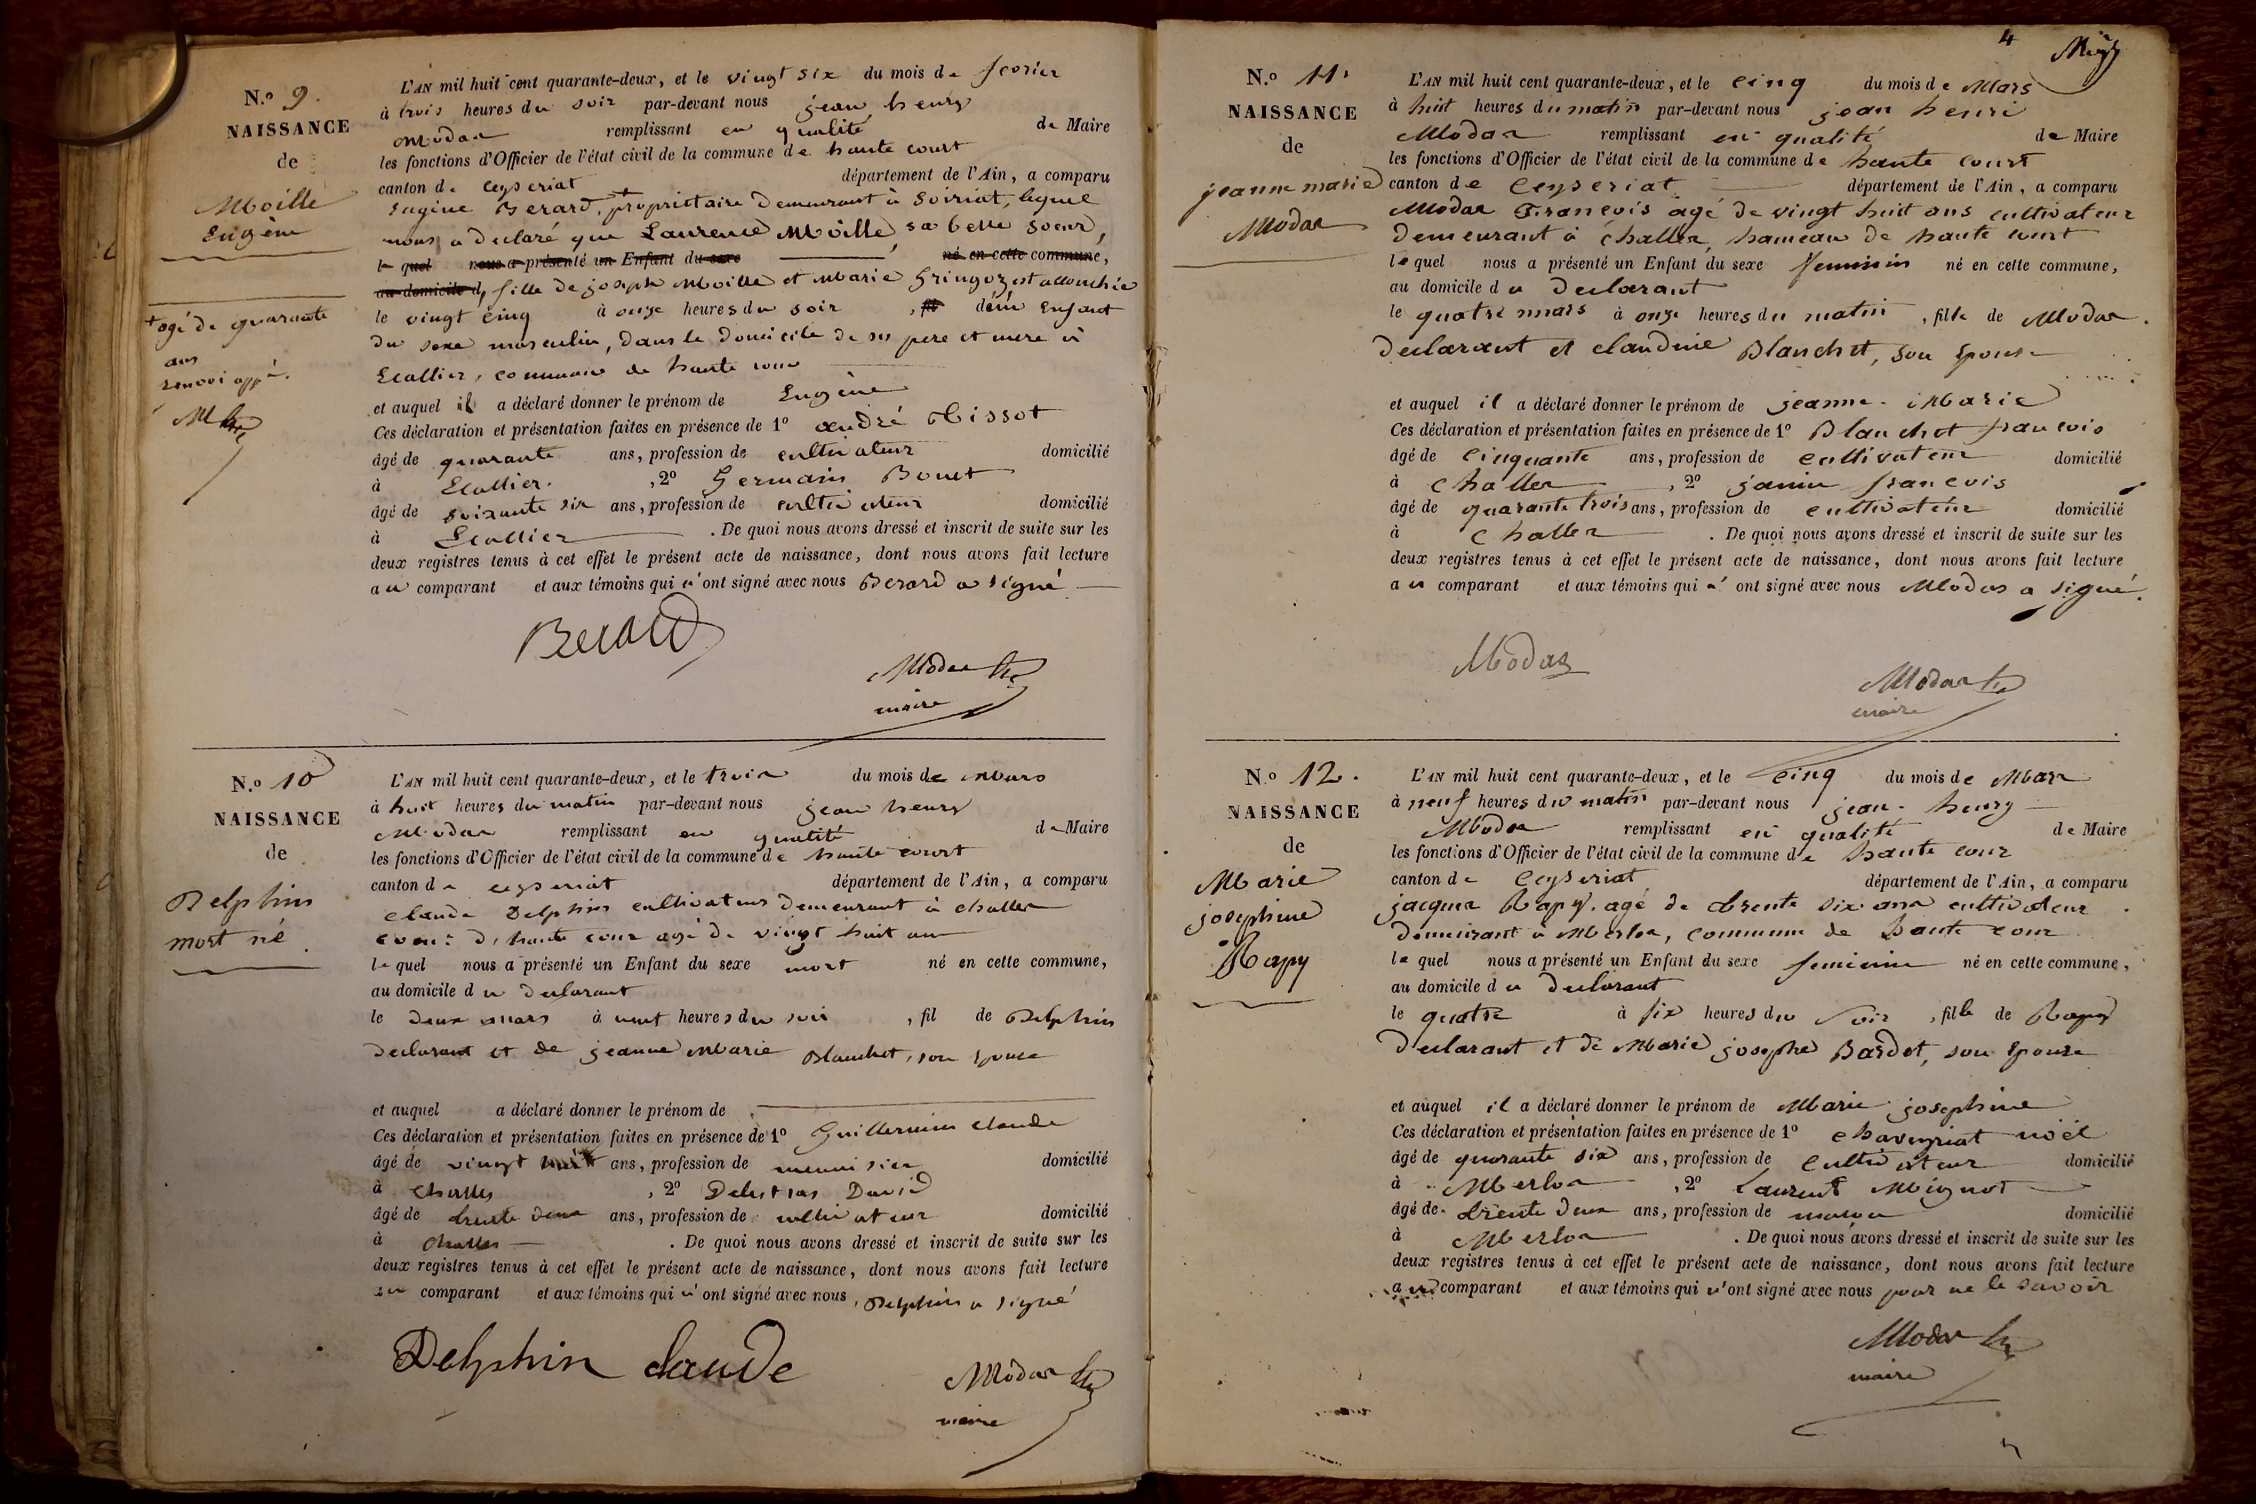 N.º 9.
NAISSANCE
de
Moille
Eugène
+ agé de quarante
ans
renvoi app.é
L'AN mil huit cent quarante-deux, et le vingt six du mois de fevrier
à trois heures du soir par-devant nous jean henry
Modas remplissant en qualité de Maire
les fonctions d'Officier de l'état civil de la commune de haute court
canton de Ceyseriat département de l'Ain, a comparu
Eugène Berard, + propriétaire demeurant à Soiriat, lequel
nous a declaré que Laurence Moille sa belle soeur,
le quel nous a présenté un Enfant du sexe né en cette commune,
au domicile d, fille de joseph Moille et Marie Gringoz est accouchée
le vingt cinq à onze heures du soir, d'un Enfant
du sexe masculin, dans le domicile de ses pere et mere à
Lcallier, commune de haute cour
et auquel il a déclaré donner le prénom de Eugène
Ces déclaration et présentation faites en présence de 1º andré Bissot
âgé de quarante ans, profession de cultivateur domicilié
à Lcallier. , 2º Germain Bouet
âgé de soixante six ans, profession de cultivateur domicilié
à Lcallier . De quoi nous avons dressé et inscrit de suite sur les
deux registres tenus à cet effet le présent acte de naissance, dont nous avons fait lecture
au comparant et aux témoins qui n'ont signé avec nous Berard a signé
Berard
Modas
maire
N.º 10
NAISSANCE
de
Delphin
mort né
L'AN mil huit cent quarante-deux, et le trois du mois de Mars
à huit heures du matin par-devant nous jean henry
Modas remplissant en qualité de Maire
les fonctions d'Officier de l'état civil de la commune de haute court
canton de ceyseriat département de l'Ain, a comparu
Claude Delphin cultivateur demeurant à challes
com: de haute cour agé de vingt huit ans
lequel nous a présenté un Enfant du sexe mort né en cette commune,
au domicile du declarant
le deux mars à neuf heures du soir , fil de Delphin
declarant et de jeanne Marie Blanchet, son Epouse
et auquel a déclaré donner le prénom de
Ces déclaration et présentation faites en présence de 1º Guillermin claude
âgé de vingt huit ans, profession de menuisier domicilié
à challes , 2º David
âgé de trente deux ans, profession de cultivateur domicilié
à challes . De quoi nous avons dressé et inscrit de suite sur les
deux registres tenus à cet effet le présent acte de naissance, dont nous avons fait lecture
au comparant et aux témoins qui n'ont signé avec nous, Delphin a signé
Delphin claude
Modas
maire
4
N.º 11.
NAISSANCE
de
jeanne marie
Modas
L'AN mil huit cent quarante-deux, et le cinq du mois de Mars
à huit heures du matin par-devant nous jean henri
Modas remplissant en qualité de Maire
les fonctions d'Officier de l'état civil de la commune de haute court
canton de Ceyseriat département de l'Ain, a comparu
Modas Francois agé de vingt huit ans cultivateur
demeurant à challes, hameau de haute court
lequel nous a présenté un Enfant du sexe feminin né en cette commune,
au domicile du declarant
le quatre mars à onze heures du matin , fille de Modas
declarant et claudine Blanchet, son Epouse
et auquel il a déclaré donner le prénom de jeanne-Marie
Ces déclaration et présentation faites en présence de 1º Blanchet francois
âgé de cinquante ans, profession de cultivateur domicilié
à challes , 2º janin francois
âgé de quarante trois ans, profession de cultivateur domicilié
à challes . De quoi nous avons dressé et inscrit de suite sur les
deux registres tenus à cet effet le présent acte de naissance, dont nous avons fait lecture
au comparant et aux témoins qui n'ont signé avec nous Modas a signé.
Modas
Modas
maire
N.º 12.
NAISSANCE
de
Marie
josephine
Rapy
L'AN mil huit cent quarante-deux, et le cinq du mois de Mars
à neuf heures du matin par-devant nous jean-henry
Modas remplissant en qualité de Maire
les fonctions d'Officier de l'état civil de la commune de haute cour
canton de Ceyseriat département de l'Ain, a comparu
jacques Rapy. agé de trente six ans cultivateur
demeurant à Merloz, commune de haute cour
lequel nous a présenté un Enfant du sexe feminin né en cette commune,
au domicile du declarant
le quatre à six heures du soir , fille de Rapy
declarant et de Marie josephe Bardet, son Epouse
et auquel il a déclaré donner le prénom de Marie josephine
Ces déclaration et présentation faites en présence de 1º chaveyriat noël
âgé de quarante six ans, profession de cultivateur domicilié
à Merloz , 2º Laurent Mignot
âgé de trente deux ans, profession de maçon domicilié
à Merloz . De quoi nous avons dressé et inscrit de suite sur les
deux registres tenus à cet effet le présent acte de naissance, dont nous avons fait lecture
au comparant et aux témoins qui n'ont signé avec nous pour ne le savoir
Modas
maire